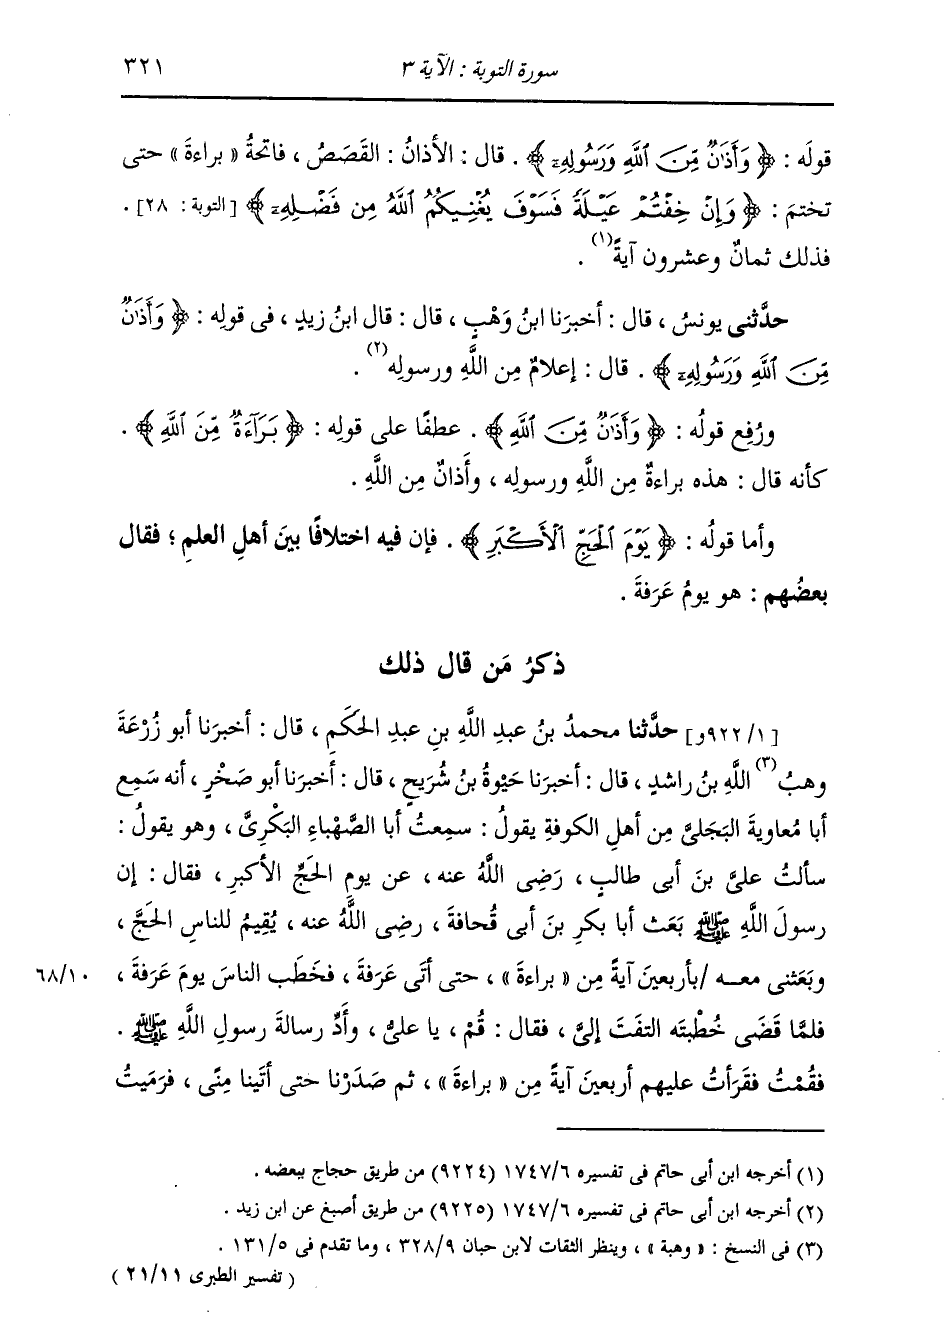 سورة التوبة : الآية ٣ ٣٢١
قولَه : ﴿ وَأَذَٰنٌ مِّنَ ٱللَّهِ وَرَسُولِهِۦٓ ﴾ . قال : الأذانُ : القَصَصُ ، فاتحةُ « براءةَ » حتى
تختمَ : ﴿ وَإِنْ خِفْتُمْ عَيْلَةً فَسَوْفَ يُغْنِيكُمُ ٱللَّهُ مِن فَضْلِهِۦٓ ﴾ [التوبة : ٢٨] .
فذلك ثمانٌ وعشرون آيةً(١) .
حدَّثنى يونسُ ، قال : أخبرَنا ابنُ وَهْبٍ ، قال : قال ابنُ زيدٍ ، فى قولِه : ﴿ وَأَذَٰنٌ
مِّنَ ٱللَّهِ وَرَسُولِهِۦٓ ﴾ . قال : إعلامٌ مِن اللَّهِ ورسولِه(٢) .
ورُفِع قولُه : ﴿ وَأَذَٰنٌ مِّنَ ٱللَّهِ ﴾ . عطفًا على قولِه : ﴿ بَرَآءَةٌ مِّنَ ٱللَّهِ ﴾ .
كأنه قال : هذه براءةٌ مِن اللَّهِ ورسولِه ، وأَذانٌ مِن اللَّهِ .
وأما قولُه : ﴿ يَوْمَ ٱلْحَجِّ ٱلْأَكْبَرِ ﴾ . فإن فيه اختلافًا بينَ أهلِ العلمِ ؛ فقال
بعضُهم : هو يومُ عَرَفةَ .
ذكرُ مَن قال ذلك
[٩٢٢/١و] حدَّثنا محمدُ بنُ عبدِ اللَّهِ بنِ عبدِ الحَكَمِ ، قال : أخبرَنا أبو زُرْعَةَ
وهبُ(٣) اللَّهِ بنُ راشدٍ ، قال : أخبرَنا حَيْوةُ بنُ شُرَيحٍ ، قال : أخبرَنا أبو صَخْرٍ ، أنه سَمِع
أبا مُعاويةَ البَجَلىَّ مِن أهلِ الكوفةِ يقولُ : سمِعتُ أبا الصَّهْباءِ البَكْرىَّ ، وهو يقولُ :
سألتُ علىَّ بنَ أبى طالبٍ ، رَضِى اللَّهُ عنه ، عن يومِ الحَجِّ الأكبرِ ، فقال : إن
رسولَ اللَّهِ ﷺ بَعَث أبا بكرِ بنَ أبى قُحافةَ ، رضِى اللَّهُ عنه ، يُقِيمُ للناسِ الحَجَّ ،
وبَعَثنى معه /بأربعينَ آيةً مِن « براءةَ » ، حتى أتَى عَرَفةَ ، فخَطَب الناسَ يومَ عَرَفةَ ، ٦٨/١٠
فلمَّا قَضَى خُطْبتَه التفَتَ إلىَّ ، فقال : قُمْ ، يا علىُّ ، وأَدِّ رسالةَ رسولِ اللَّهِ ﷺ .
فقُمْتُ فقَرَأتُ عليهم أربعينَ آيةً مِن « براءةَ » ، ثم صَدَرْنا حتى أتَينا مِنًى ، فرَمَيتُ
(١) أخرجه ابن أبى حاتم فى تفسيره ١٧٤٧/٦ (٩٢٢٤) من طريق حجاج ببعضه .
(٢) أخرجه ابن أبى حاتم فى تفسيره ١٧٤٧/٦ (٩٢٢٥) من طريق أصبغ عن ابن زيد .
(٣) فى النسخ : « وهبة » ، وينظر الثقات لابن حبان ٣٢٨/٩ ، وما تقدم فى ١٣١/٥ .
( تفسير الطبرى ٢١/١١ )